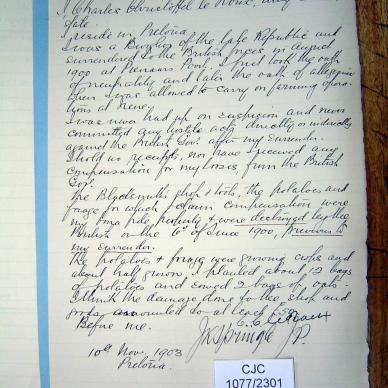 I Charles Christoffel le Roux, 
state:
I reside in Pretoria
I was a Burgher of the late Republic and
surrendered to the British forces in August
1900 at Pienaars Poort. I first took the oath
of neutrality and later the oath of allegiance
when I was allowed to carry on farming opera-
tions at
I was never had up on suspicion and never
committed any hostile act directly or indirectly
against the British Gov. after my surrender.
I hold no receipts, nor have I received any
compensation for my losses from the British
Gov.
The Blacksmith's shop & tools, the potatoes and
forage for which I claim compensation were
my bona fide property & were destroyed by the
British on the 6th of June 1900, previous to
my surrender.
The potatoes & forage were growing crops and
about half grown. I planted about 12 bags
of potatoes and sowed 2 bags of oats.
I think the damage done to the shop and
crops amounted to at least
Before me.
J.P.
10th Nov. 1903
Pretoria.
CJC
1077/2301